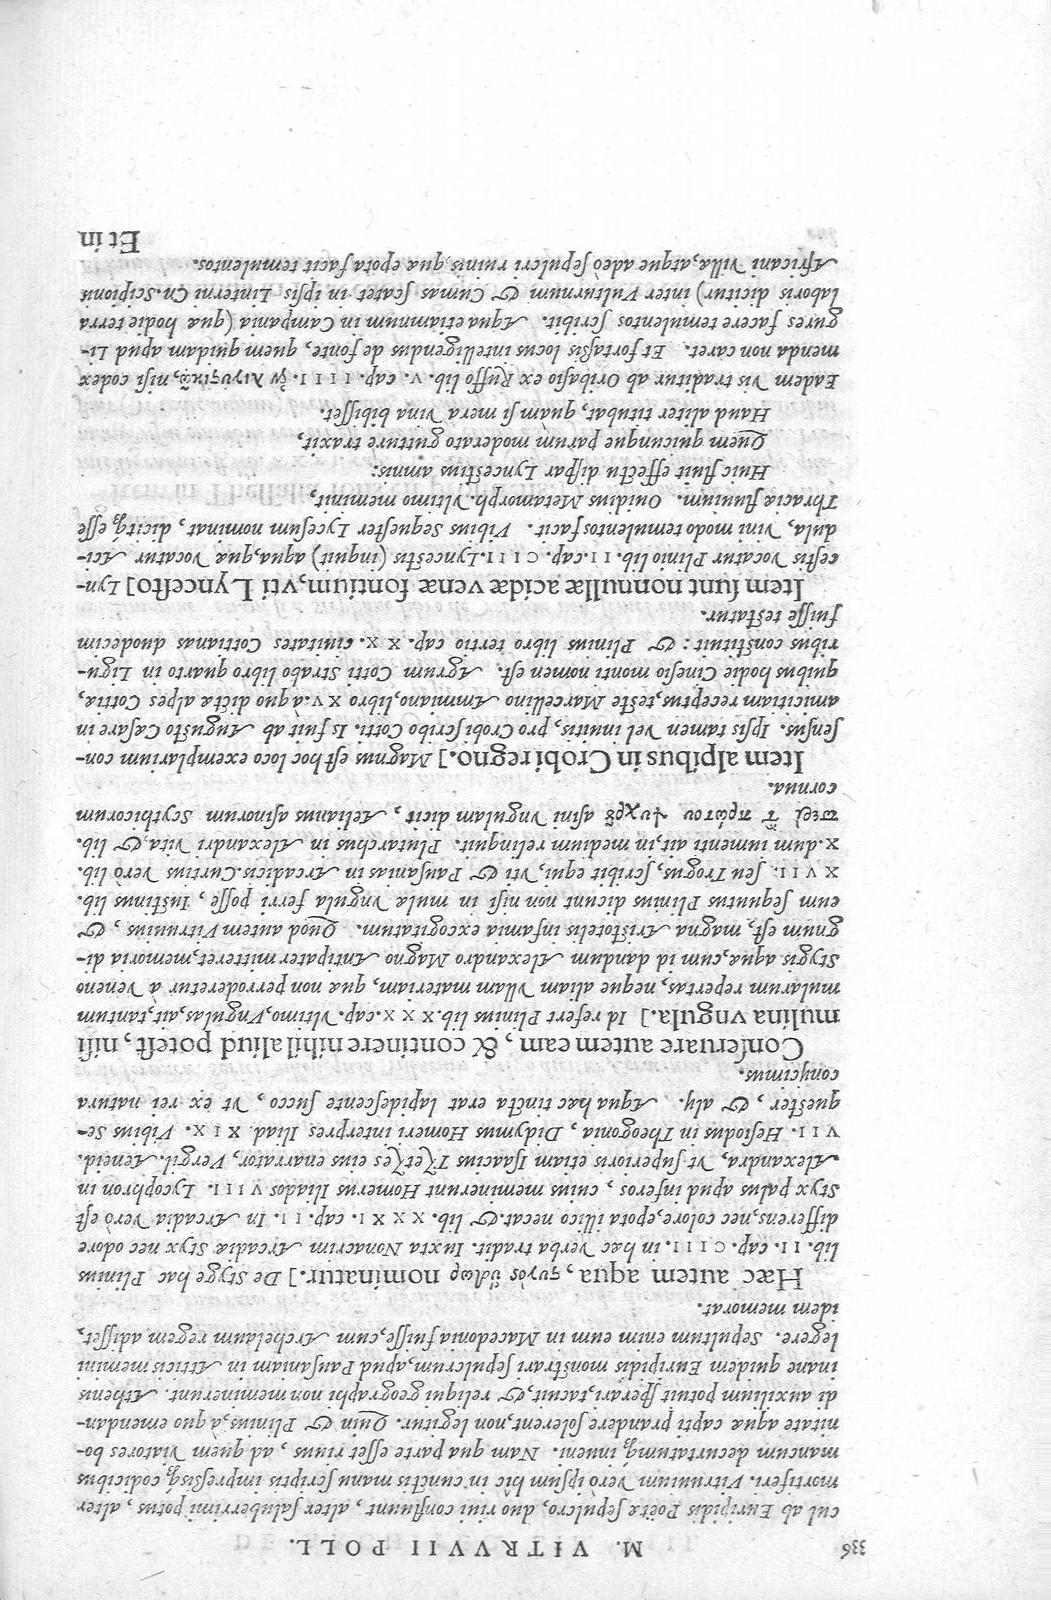 336 M. VITRVVII POLL.
cul ab Euripidis Poëtæ ſepulcro, duo riui confluunt, alter ſaluberrimi potus, alter
mortiferi. Vitruuium verò ipſum hîc in cunctis manu ſcriptis impreſsisq́; codicibus
mancum decurtatumq́; inueni. Nam qua parte eſſet riuus, ad quem viatores bo-
nitate aquæ capti prandere ſolerent, non legitur. Quin & Plinius, à quo emendan-
di auxilium potuit ſperari, tacuit, & reliqui geographi non meminerunt. Athenis
inane quidem Euripidis monſtrari ſepulcrum, apud Pauſaniam in Atticis memini
legere. Sepultum enim eum in Macedonia fuiſſe, cum Archelaum regem adiſſet,
idem memorat.
Hæc autem aqua, ςυγὸς ὕδωρ nominatur.] De Styge hæc Plinius
lib. II. cap. CIII. in hæc verba tradit. Iuxta Nonacrim Arcadiæ Styx nec odore
differens, nec colore, epota illico necat. & lib. XXXI. cap. II. In Arcadia verò eſt
Styx palus apud inferos, cuius meminerunt Homerus Iliados VIII. Lycophron in
Alexandra, vt ſuperioris etiam Iſaacius Tζετζες eius enarrator, Vergil. Aeneid.
VII. Heſiodus in Theogonia, Didymus Homeri interpres Iliad. XIX. Vibius Se-
queſter, & alij. Aqua hæc tincta erat lapideſcente ſucco, vt ex rei natura
conijcimus.
Conſeruare autem eam, & continere nihil aliud poteſt, niſi
mulina vngula.] Id refert Plinius lib. XXX. cap. vltimo, Vngulas, ait, tantum
mularum repertas, neque aliam vllam materiam, quæ non perroderetur à veneno
Stygis aquæ, cum id dandum Alexandro Magno Antipater mitteret, memoria di-
gnum eſt, magna Ariſtotelis infamia excogitatum. Quod autem Vitruuius, &
eum ſequutus Plinius dicunt non niſi in mulæ vngula ferri poſſe, Iuſtinus lib.
XVII. ſeu Trogus, ſcribit equi, vti & Pauſanias in Arcadicis. Curtius verò lib.
X. dum iumenti ait, in medium relinquit. Plutarchus in Alexandri vita, & lib.
περὶ τ͂ πρώτου ψυχρȣ͂ aſini vngulam dicit, Aelianus aſinorum Scythicorum
cornua.
Item alpibus in Crobi regno.] Magnus eſt hoc loco exemplarium con-
ſenſus. Ipſis tamen vel inuitis, pro Crobi ſcribo Cotti. Is fuit ab Auguſto Cæſare in
amicitiam receptus, teſte Marcellino Ammiano, libro XV. à quo dictæ alpes Cottiæ,
quibus hodie Cineſio monti nomen eſt. Agrum Cotti Strabo libro quarto in Ligu-
ribus conſtituit: & Plinius libro tertio cap. XX. ciuitates Cottianas duodecim
fuiſſe teſtatur.
Item ſunt nonnullæ acidæ venæ fontium, vti Lynceſto] Lyn-
ceſtis vocatur Plinio lib. II. cap. CIII. Lynceſtis (inquit) aqua, quæ vocatur Aci-
dula, vini modo temulentos facit. Vibius Sequeſter Lyceſum nominat, dicitq́; eſſe
Thraciæ fluuium. Ouidius Metamorph. vltimo meminit,
Huic fluit effectu diſpar Lynceſtius amnis:
Quem quicunque parùm moderato gutture traxit,
Haud aliter titubat, quàm ſi mera vina bibiſſet.
Eadem vis traditur ab Oribaſio ex Ruffo lib. V. cap. IIII. λιγυςικῶ͂, niſi codex
menda non caret. Et fortaſsis locus intelligendus de fonte, quem quidam apud Li-
gures facere temulentos ſcribit. Aqua etiamnum in Campania (quæ hodie terra
laboris dicitur) inter Vulturnum & Cumas ſcatet in ipſis Linterni Cn. Scipionis
Africani villæ, atque adeò ſepulcri ruinis, quæ epota facit temulentos.
Et in